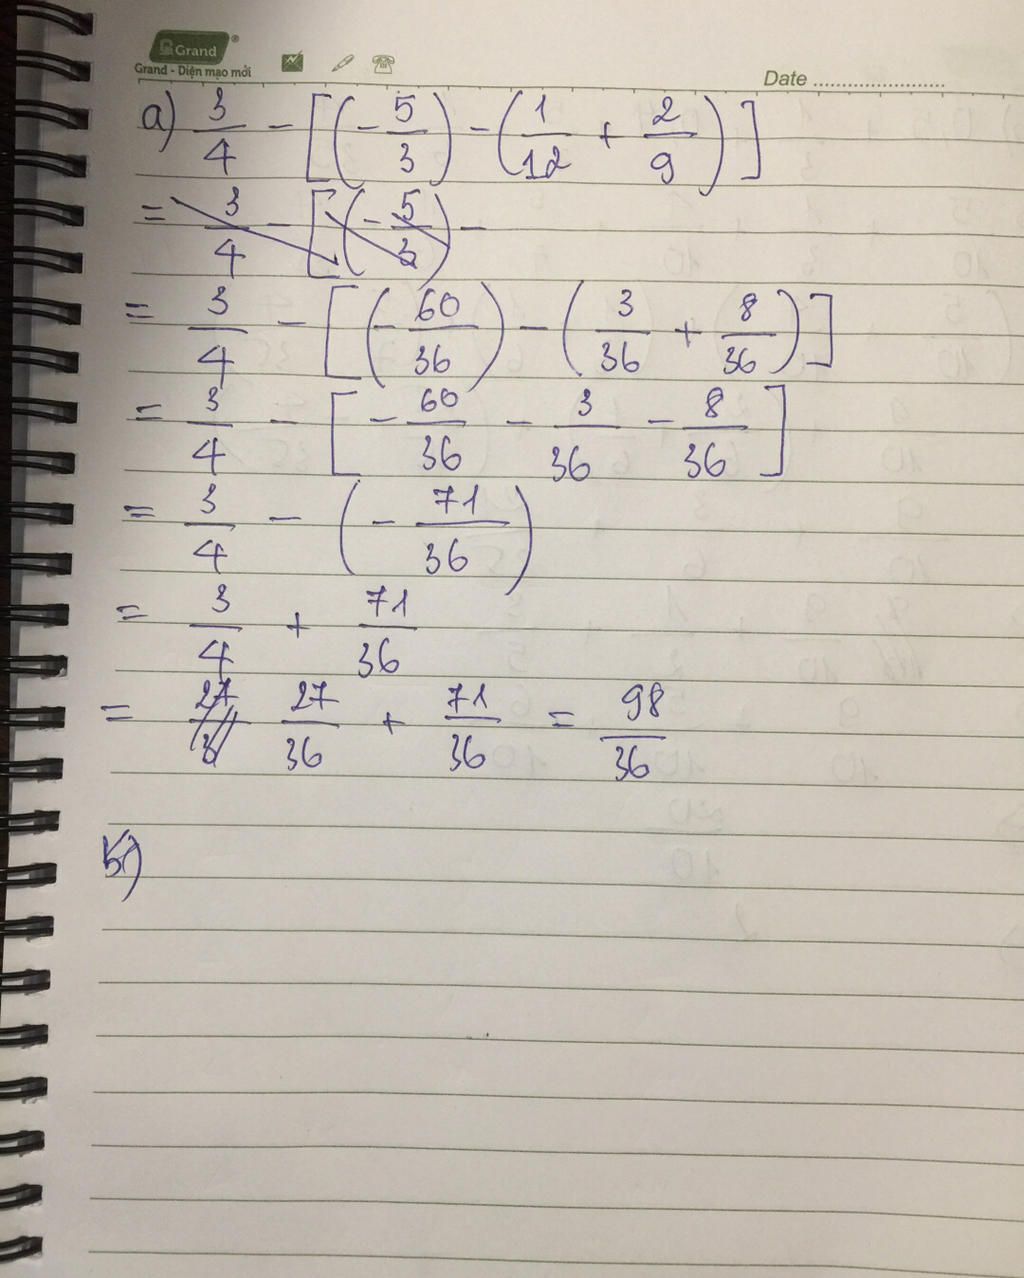 Grand
Grand - Diện mạo mới
Date
a) 3/4 - [(-5/3) - (1/12 + 2/9)]
= 3/4 - [(-5/3) -
= 3/4 - [(-60/36) - (3/36 + 8/36)]
= 3/4 - [-60/36 - 3/36 - 8/36]
= 3/4 - (-71/36)
= 3/4 + 71/36
= 27/3 27/36 + 71/36 = 98/36
b)